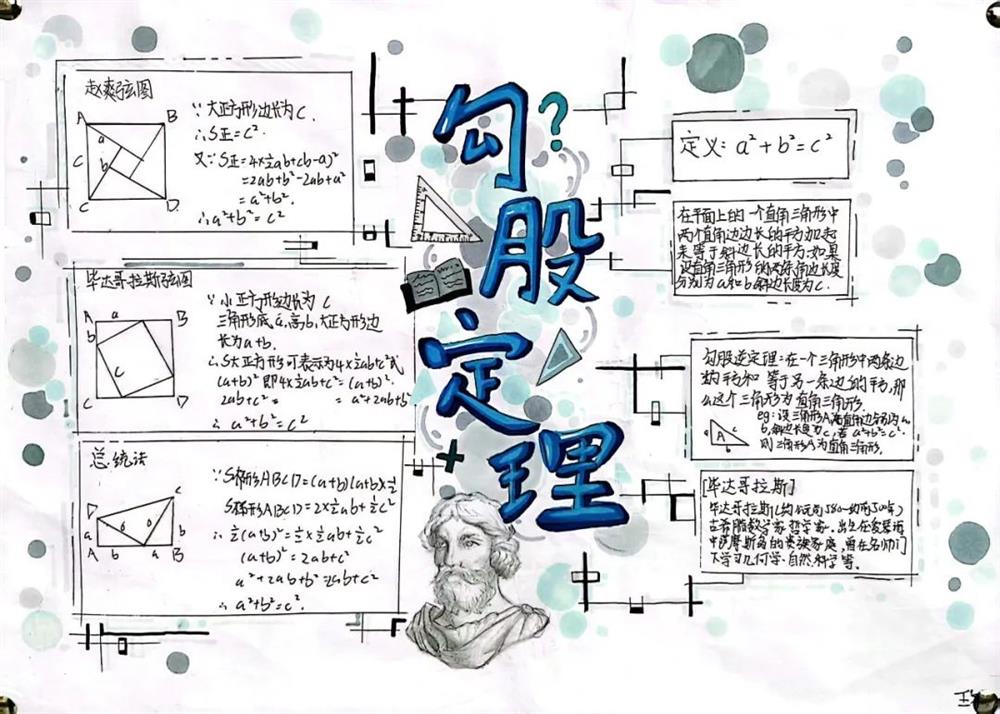 勾股定理
?
赵爽弦图
A
B
a
C
b
C
D
∵大正方形边长为C.
∴S正=C².
又∵S正=4×½ab+(b-a)²
=2ab+b²-2ab+a²
=a²+b².
∴a²+b²=c²
毕达哥拉斯弦图
A
a
B
b
C
C
D
∵小正方形边长为 C
三角形底a,高b,大正方形边
长为a+b.
∴S大正方形可表示为4×½ab+c²或
(a+b)² 即4×½ab+c²=(a+b)².
2ab+c²= =a²+2ab+b²
∴a²+b²=c²
总统法
D
C
a
b
A
b
a
B
∵S梯形ABCD=(a+b)(a+b)×½
S梯形ABCD=2×½ab+½c²
∴½(a+b)²=½×½ab+½c²
(a+b)²=2ab+c²
a²+2ab+b²=2ab+c²
∴a²+b²=c².
定义:a²+b²=c²
在平面上的一个直角三角形中
两个直角边边长的平方加起
来等于斜边长的平方.如果
设直角三角形的两条直角边长度
分别为a和b,斜边长度为C.
勾股逆定理:在一个三角形中两条边
的平方和 等于另一条边的平方,那
么这个三角形为直角三角形.
eg:设三角形A两直角边分别为a,
b,斜边长度为c,若a²+b²=c².
则三角形A为直角三角形.
a
A
c
[毕达哥拉斯]
毕达哥拉斯(约公元前580-约前500年)
古希腊数学家、哲学家.出生在爱琴海
中萨摩斯岛的贵族家庭,曾在名师门
下学习几何学、自然科学等.